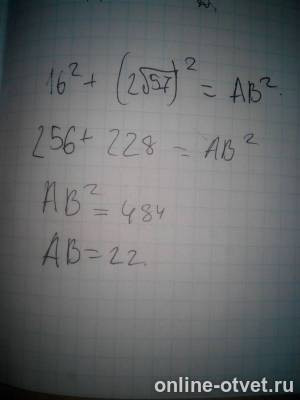 16² + (2√57)² = AB².
256 + 228 = AB²
AB² = 484
AB = 22.
online-otvet.ru